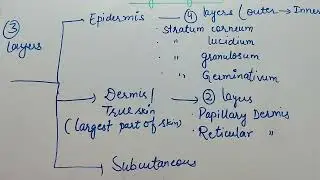 ③ layers
Epidermis — ④ layers (outer → Inner
· stratum corneum
· " lucidium
· " granulosum
· " Germinativum
Dermis /
True skin
(largest part of skin)
② layers
· Papillary Dermis
· Reticular "
Subcutaneous